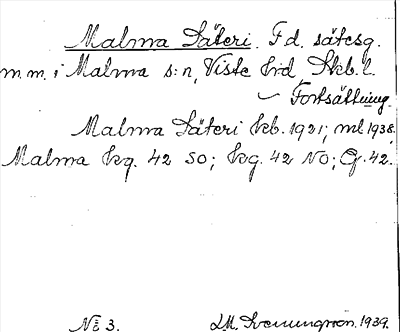 Malma Säteri. Fd. sätesg.
m.m. i Malma s:n, Viste hd, Skb. l.
Fortsättning.
Malma Säteri kb. 1921; ml 1938.
Malma kg. 42 SO; kg. 42 NO; Gf. 42.
No 3. I.M. Svenungsson. 1939.